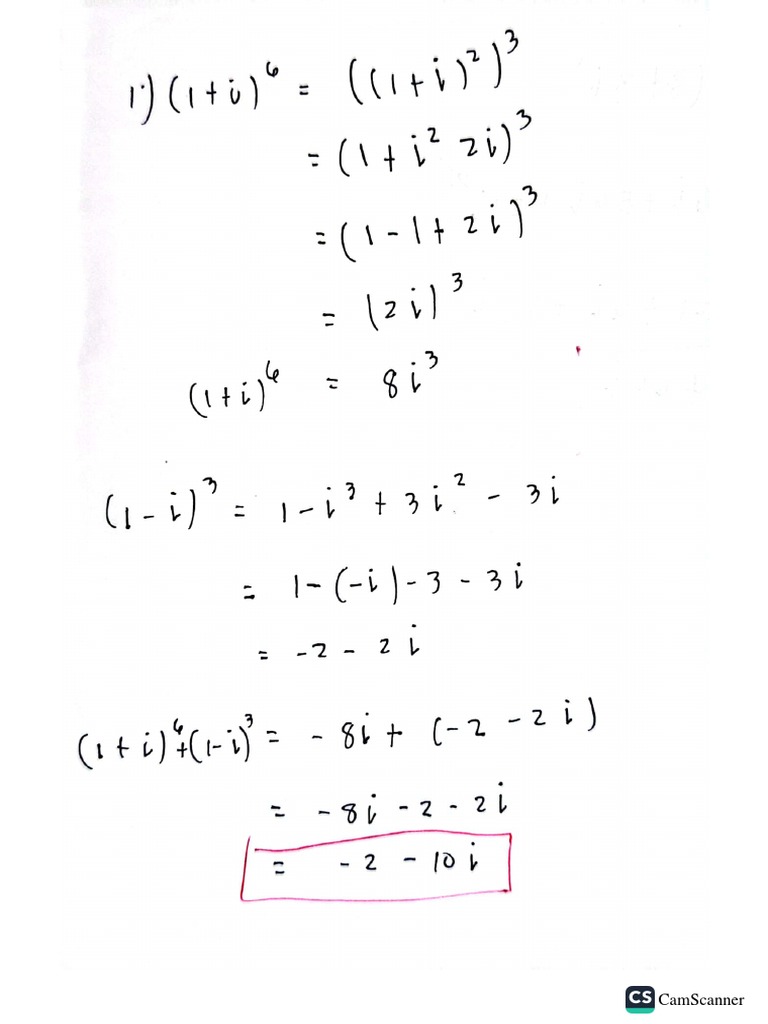 1.) (1+i)⁶ = ((1+i)²)³
= (1+i² 2i)³
= (1-1+2i)³
= (2i)³
(1+i)⁶ = 8i³
(1-i)³ = 1-i³+3i² - 3i
= 1-(-i)-3-3i
= -2-2i
(1+i)⁶+(1-i)³ = -8i+(-2-2i)
= -8i-2-2i
= -2-10i
CS CamScanner